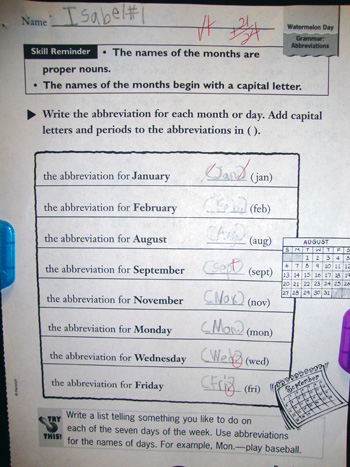 Name Isabel #1
21
24
Watermelon Day
Grammar: Abbreviations
Skill Reminder • The names of the months are
proper nouns.
• The names of the months begin with a capital letter.
Write the abbreviation for each month or day. Add capital
letters and periods to the abbreviations in ( ).
the abbreviation for January Jan. (jan)
the abbreviation for February (feb)
the abbreviation for August (aug)
the abbreviation for September sept (sept)
the abbreviation for November Nov. (nov)
the abbreviation for Monday Mon. (mon)
the abbreviation for Wednesday Wed. (wed)
the abbreviation for Friday Fri. (fri)
AUGUST
S M T W T F S
1 2 3 4 5
6 7 8 9 10 11 12
13 14 15 16 17 18 19
20 21 22 23 24 25 26
27 28 29 30 31
September
TRY THIS! Write a list telling something you like to do on
each of the seven days of the week. Use abbreviations
for the names of days. For example, Mon.—play baseball.